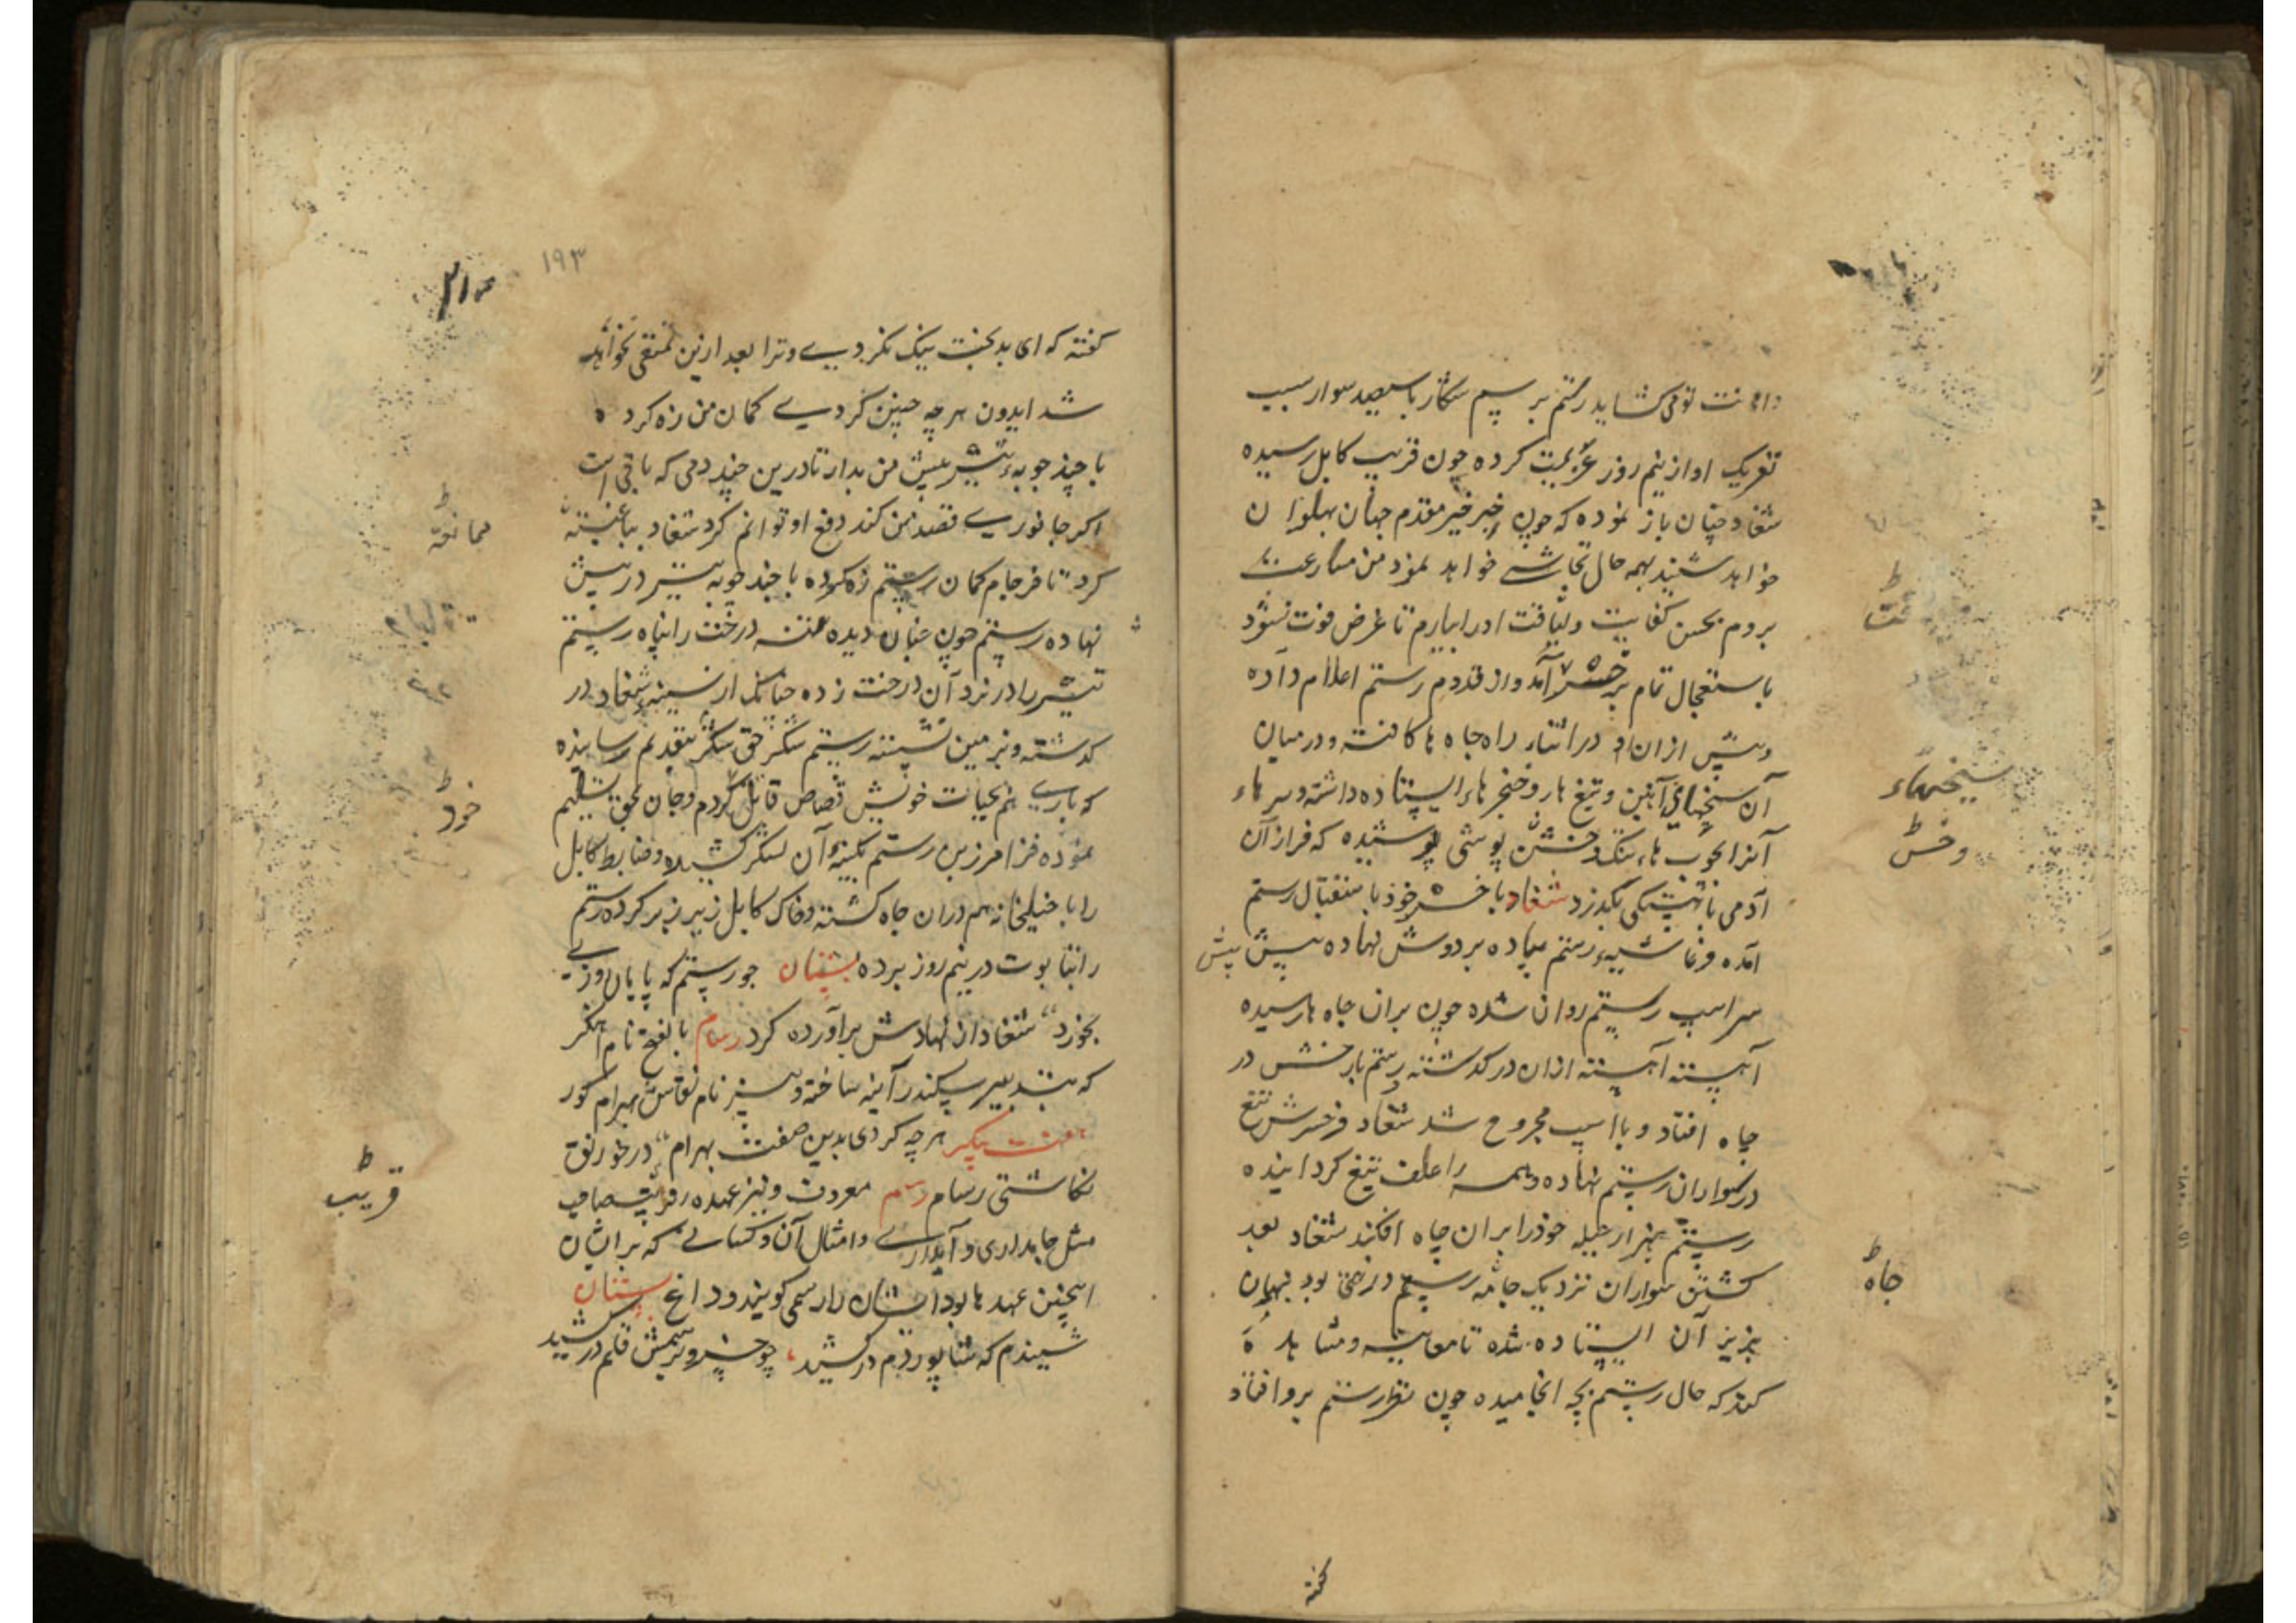 رستم برسم شکار با سیصد سوار بسبب
تحریک او از نیم روز عزیمت کرده چون قریب کابل رسیده
شغاد چنان باز نموده که چون خبر خیر مقدم جهان پهلوان
خواهد شنید بهمه حال تحاشی خواهد نمود من مسارعت
بروم بحسن کفایت ولیاقت او را بیارم تا غرض فوت نشود
باستعجال تمام بر خسر آمده و از قدوم رستم اعلام داده
وپیش ازان او در اثناء راه چاه ها کافته و در میان
آن سیخهای آهنین و تیغ ها و خنجر هاء ایستاده داشته وسر هاء
آنرا بچوب هاء تنک و خس پوشی پوشیده که فراز آن
آدمی باهستکی بگذرد شغاد با خسر خود باستقبال رستم
آمده وغاشیهء رستم پیاده بر دوش نهاده پیش پیش
سر اسپ رستم روان شده چون بران چاه ها رسیده
آهسته آهسته ازان در کذشته رستم با رخش در
چاه افتاد و با اسپ مجروح شد شغاد و خسرش تیغ
در سواران رستم نهاده و همه را علف تیغ کردانیده
رستم بهزار حیله خود را بران چاه افکند شغاد بعد
کشتن سواران نزدیک چاه رستم درختی بود
بزیر آن ایستاده شده تا معاینه و مشاهده
کند که حال رستم بچه انجامیده چون نظر رستم برو افتاد
سیخهاء
وخس
چاه
کفته
۱۹۳
کفته که ای بدبخت نیک نکردی وترا بعد ازین تمتعی نخواهد
شد ایدون هرچه چنین کردی کمان من زه کرده
با چند چوبهء تیر پیش من بدار تا درین چند دمی که باقی است
اکر جانوری قصد من کند دفع او توانم کرد شغاد
کرد تا فرجام کمان رستم زه کرده با چند چوبه تیر در پیش
نهاده رستم چون چنان دیده درخت را پناه رستم
تیر را در زد آن درخت زده چنانک از سینهء شغاد در
کذشته و بزمین نشسته رستم شکر حق بتقدیم رسانیده
که باری هم بحیات خویش قصاص قاتل کردم وجان بحق تسلیم
نموده فرامرز بن رستم بکینهء آن لشکر کشیده وضابط کابل
را با خیلخانه هم دران چاه کشته وخاک کابل زیر زبر کرده رستم
را بتابوت در نیم روز برده بستیان چو رستم که پایان روزی
بخورد شغاد از نهادش برآورده کرد رسام بالفتح نام آهنگر
که بتدبیر سکندر آینه ساخته و نیز نام نقاش بهرام کور
هفت پیکر هرچه کردی بدین صفت بهرام در خورنق
نکاشتی رسام رسم معروف ونیز عهده
مثل جابداری و آبداری وامثال آن وکسانی که بر ایشان
اینچنین عهد ها بود ایشان را رسمی کویند وداغ بستیان
شنیدم که شاپور دم در کشید چو خسرو برسمش قلم در کشید
ممانعه
خود
قریب